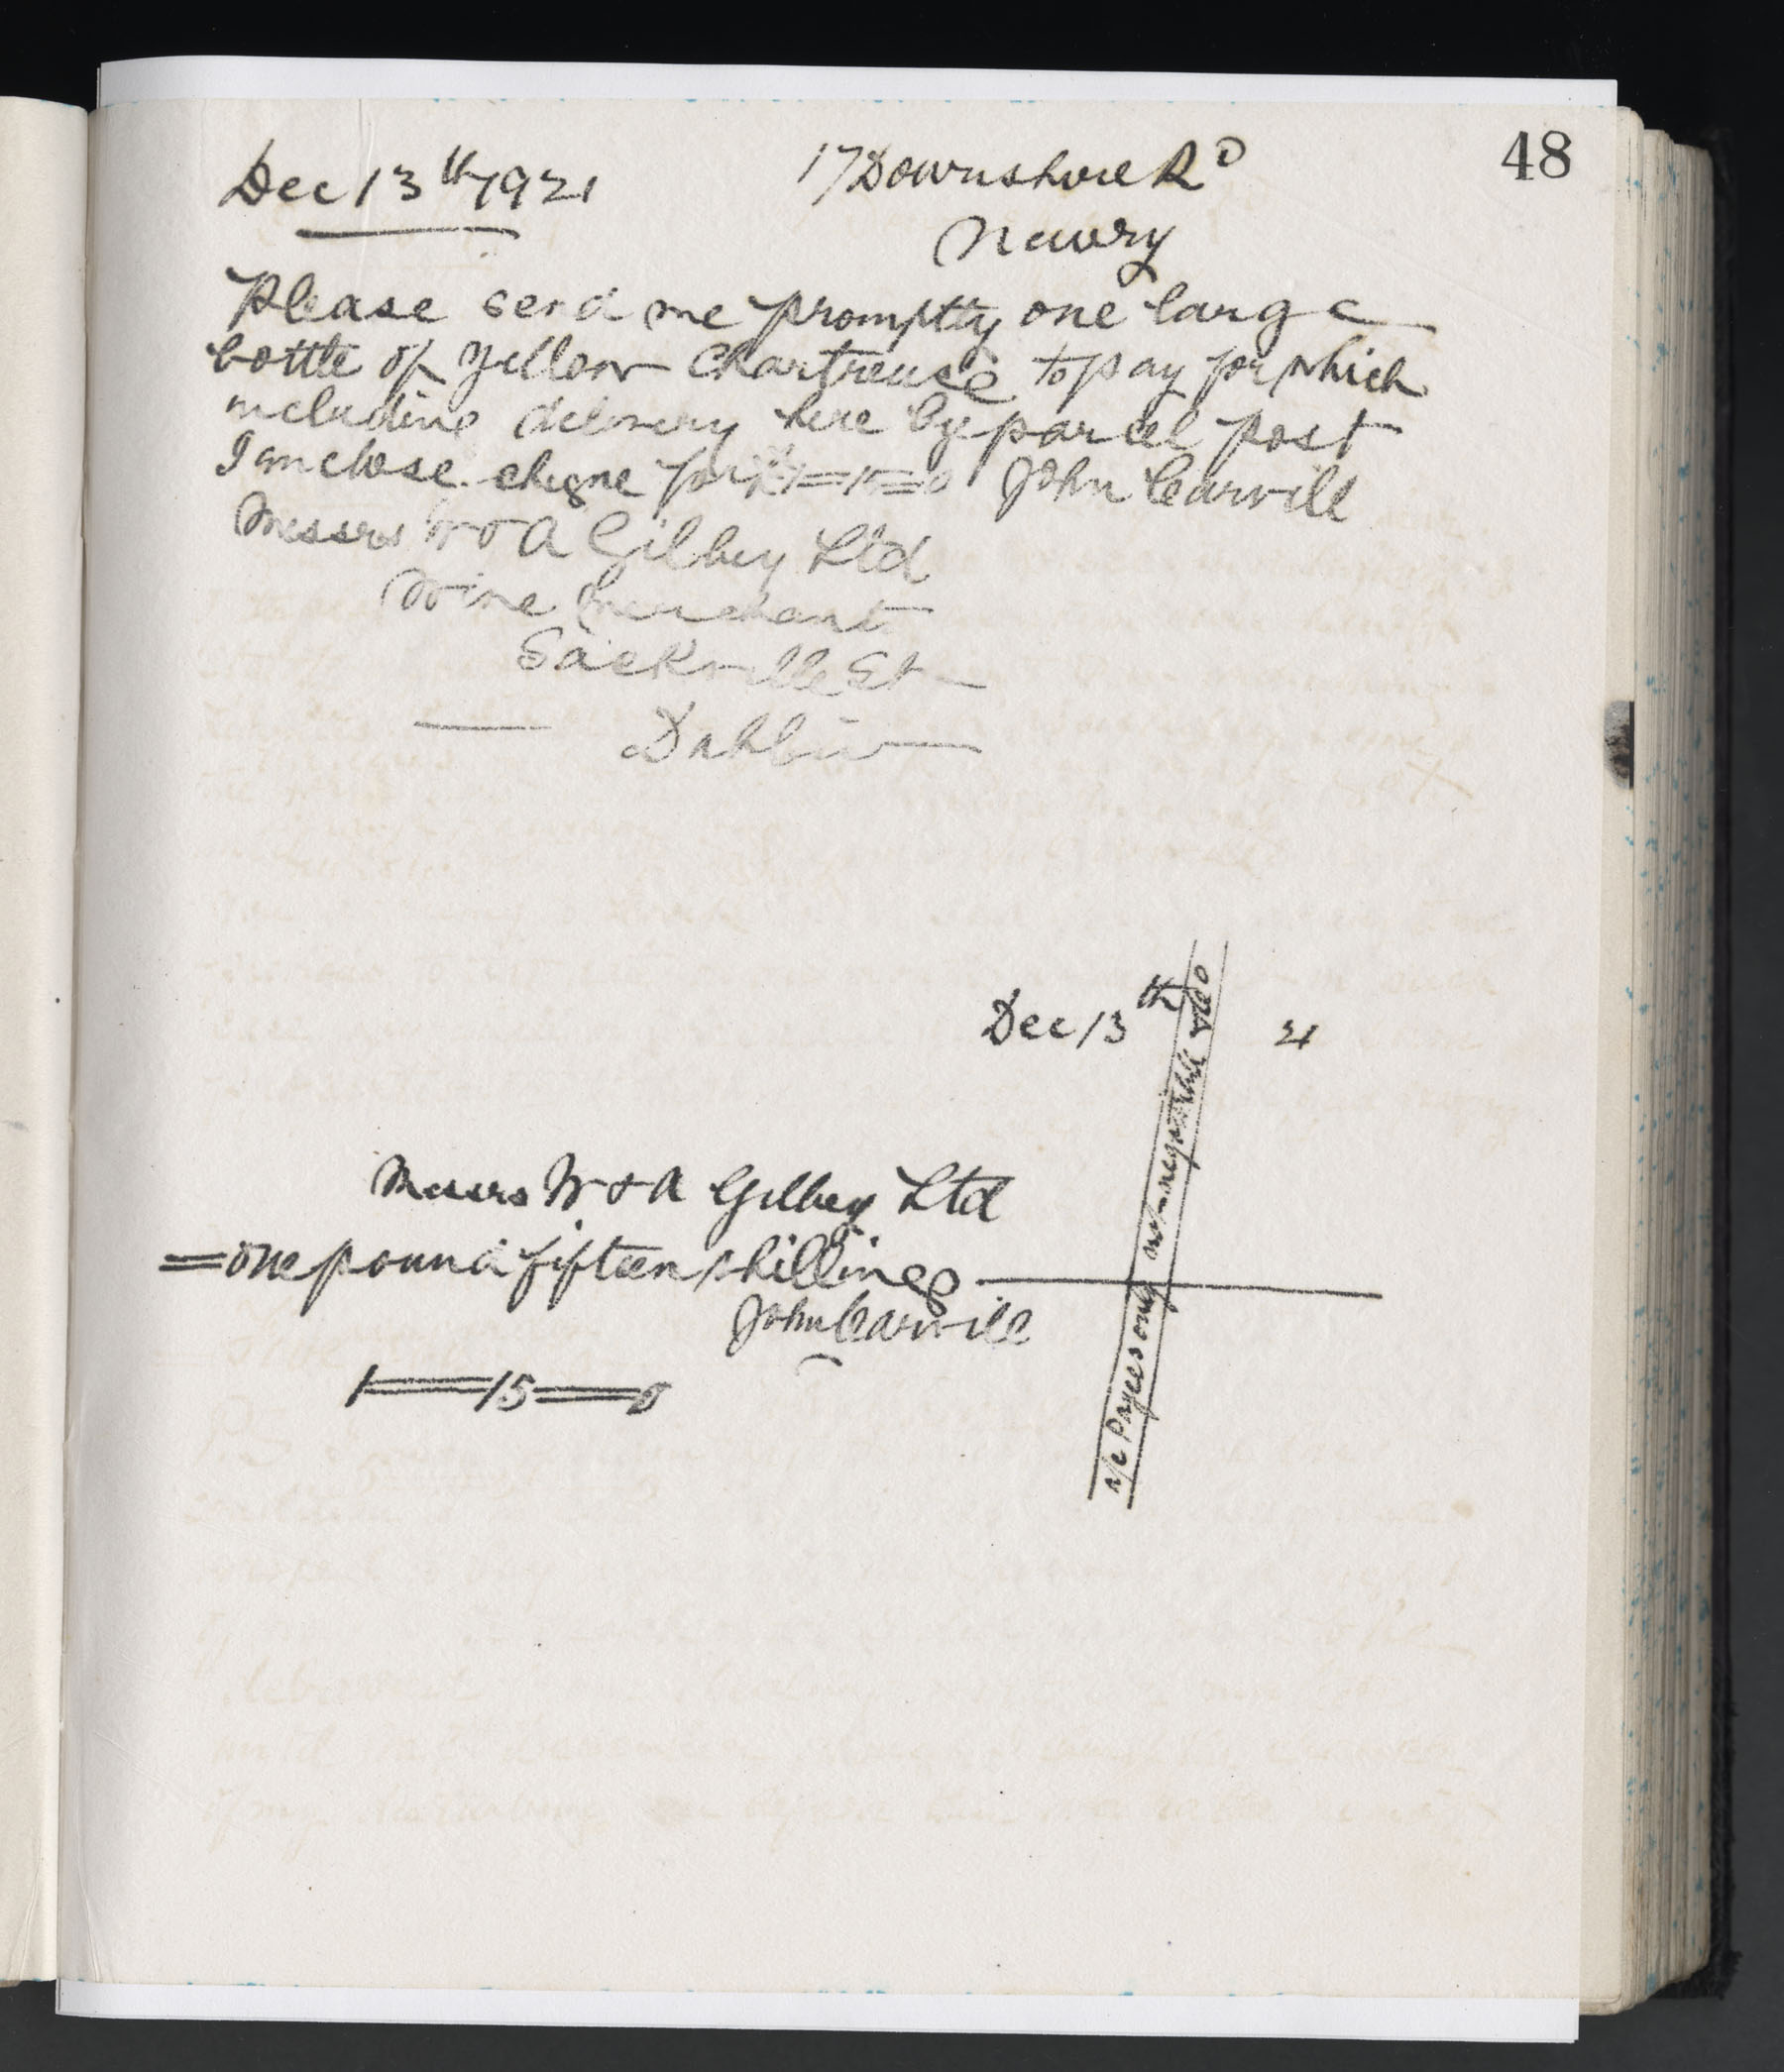 48
Dec 13th 1921
17 Downshire Rd
Newry
Please send me promptly one large
bottle of Yellow Chartreuse to pay for which
including delivery here by parcel post
I enclose cheque for 1=15=0 John Carvill
Messrs W & A Gilbey Ltd
Wine Merchant
Sackville St
Dublin
Dec 13th 21
Messrs W & A Gilbey Ltd
=one pound fifteen shillings
John Carvill
1=15=0
a/c Payees only not negotiable